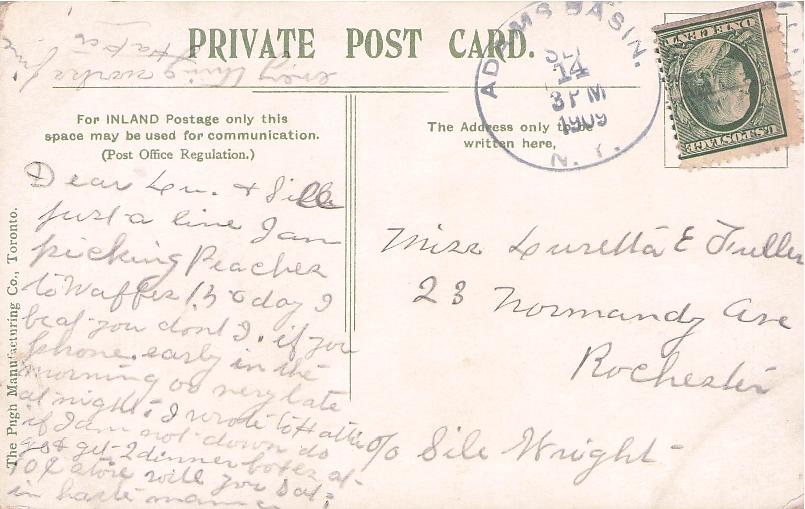 every thing works fine
PRIVATE POST CARD.
ADAMS BASIN.
SEP
14
3 PM
1909
N. Y.
U.S. POSTAGE
For INLAND Postage only this
space may be used for communication.
(Post Office Regulation.)
The Address only to be
written here,
Dear Lu. &
just a line I am
picking Peaches
to day I
beat you dont I. if you
phone. early in the
morning or very late
at night. I wrote to Hattie
if I am not down do
get 2 dinner boxes at
store will you Sat.
in haste
Miss Luretta E Fuller
23 Normandy Ave
Rochester
c/o Sile Wright
The Pugh Manufacturing Co., Toronto.